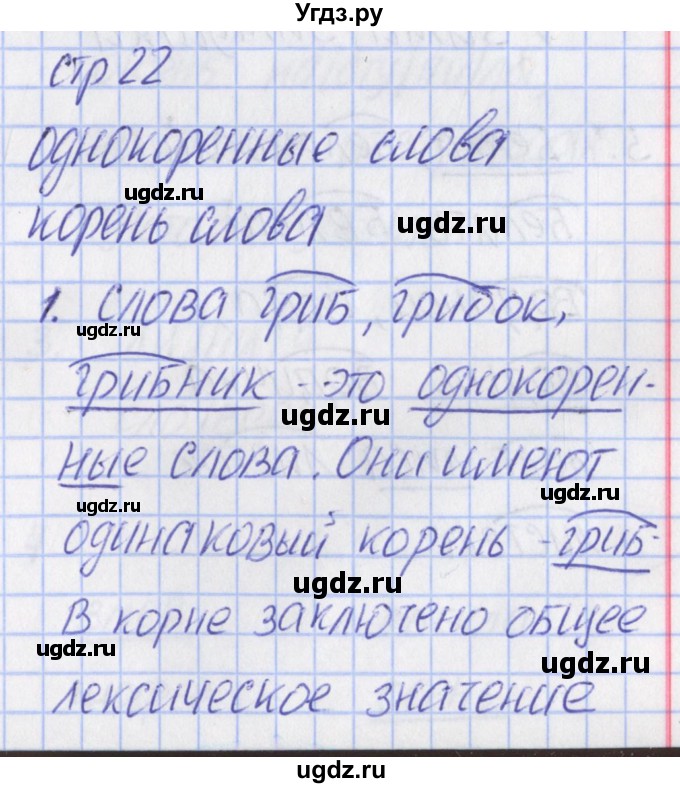 Угдз.ру
стр 22
однокоренные слова
ugdz.ru
ugdz.ru
корень слова
1. Слова гриб, грибок,
ugdz.ru
ugdz.ru
грибник - это однокорен-
ugdz.ru
ные слова. Они имеют
ugdz.ru
ugdz.ru
одинаковый корень -гриб-
ugdz.ru
В корне заключено общее
ugdz.ru
ugdz.ru
лексическое значение
ugdz.ru
ugdz.ru